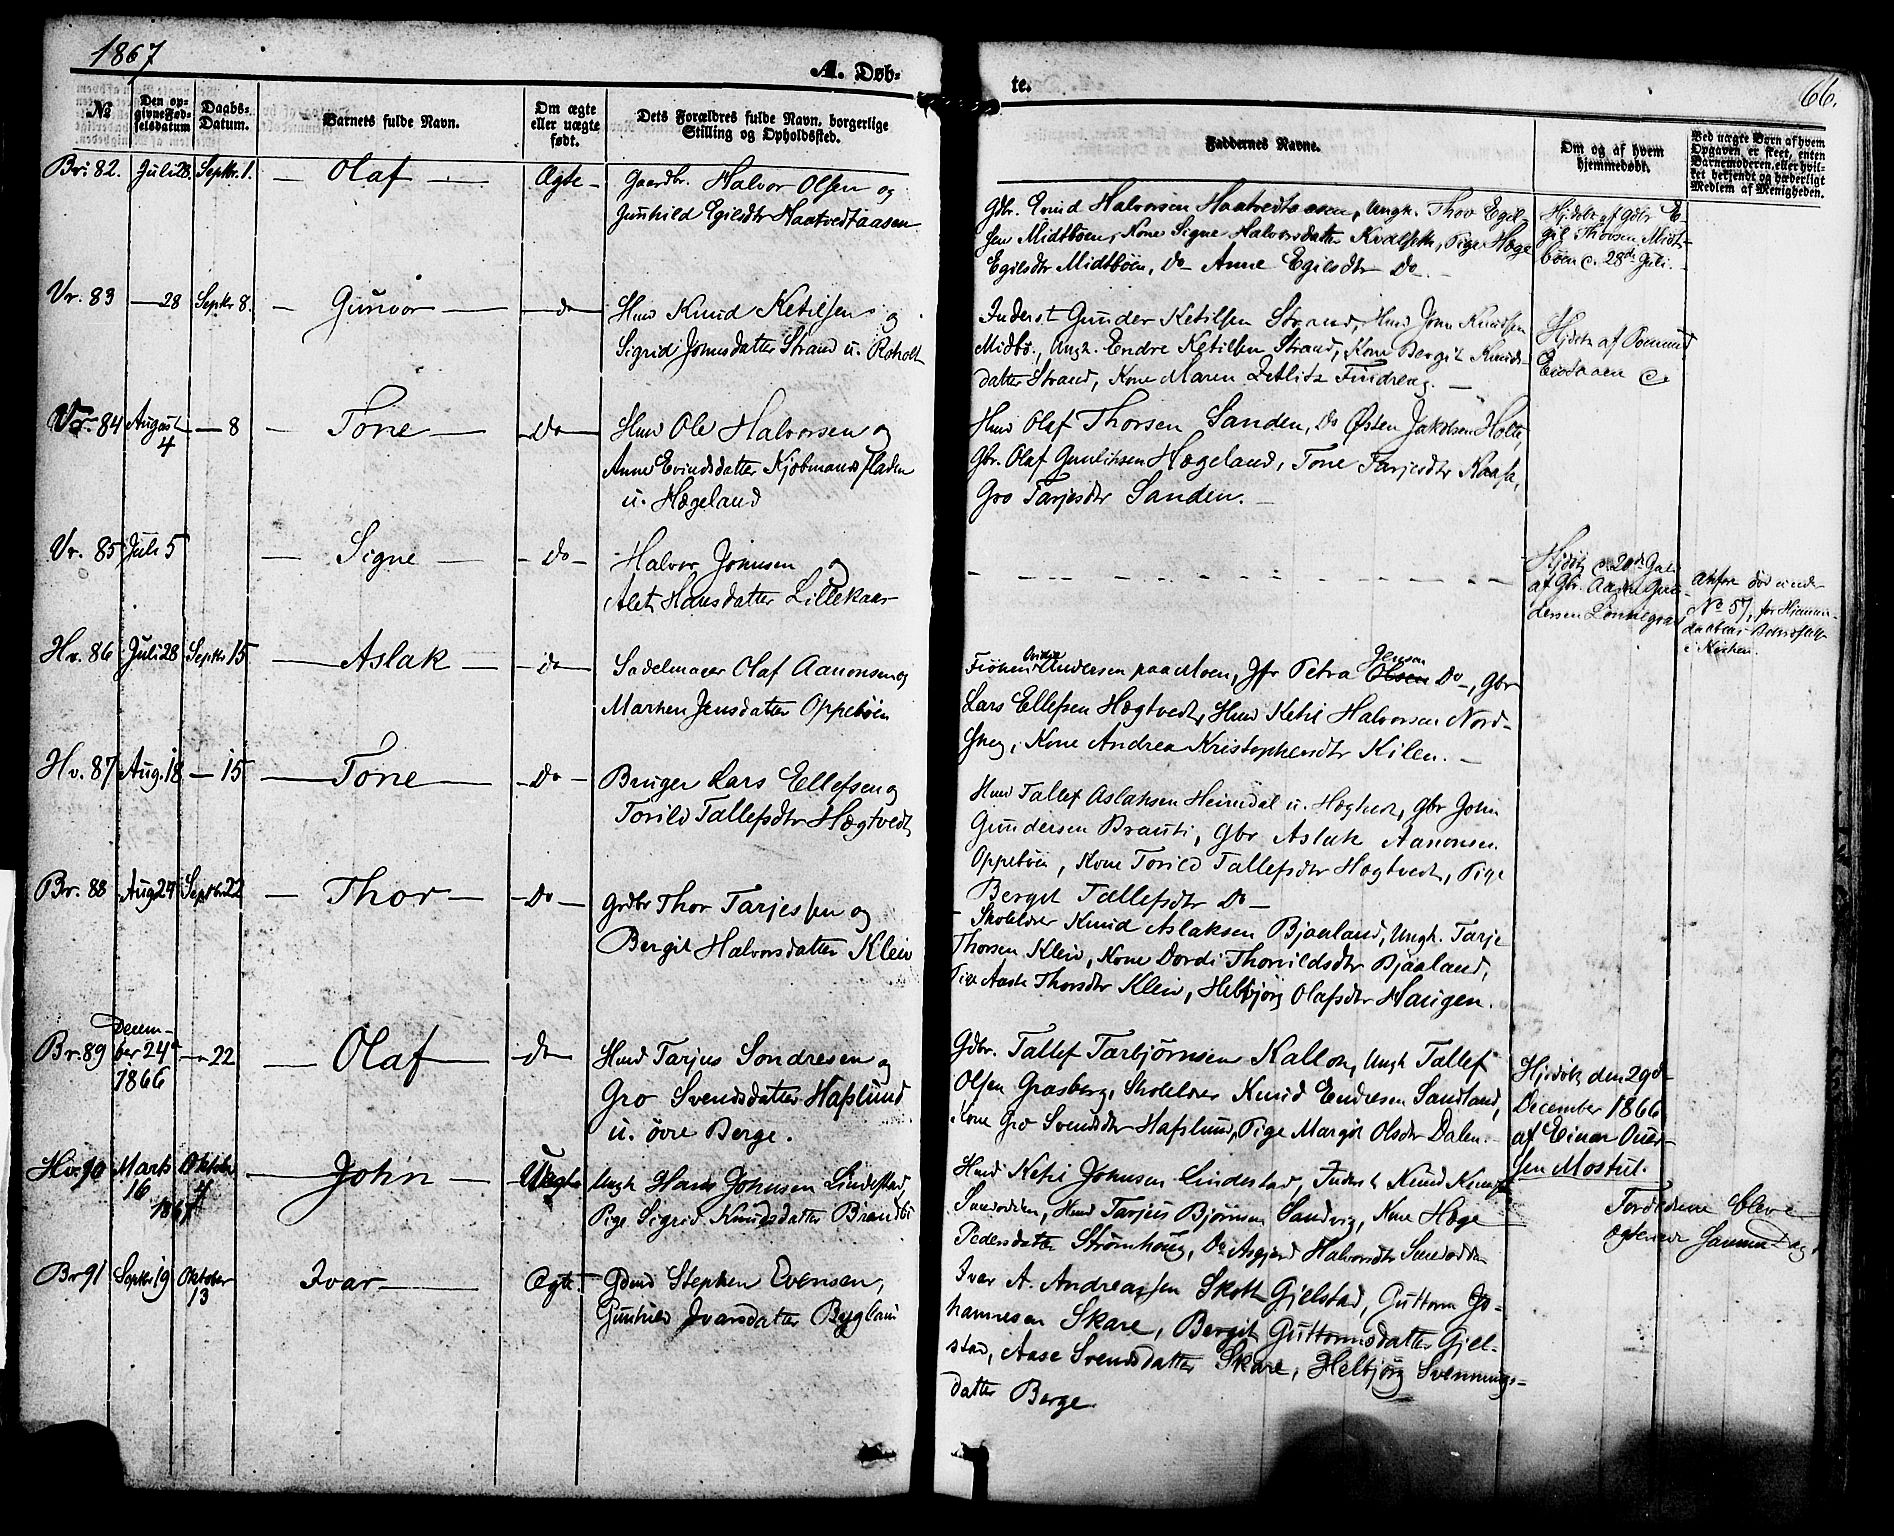 1867
A. Døb-
te.
66.
№
Den op-
givne Fød-
selsdatum
Daabs-
Datum.
Barnets fulde Navn.
Om ægte
eller uægte
født.
Dets Forældres fulde Navn, borgerlige
Stilling og Opholdssted.
Faddernes Navne.
Om og af hvem
hjemmedøbt.
Ved uægte Børn af hvem
Opgaven er skeet, enten
Barnemoderen, eller hvil-
ket bekjendt og hæderligt
Medlem af Menigheden.
Br. 82. Juli 28. Septbr. 1. — Olaf — Ægte —
Gaardbr. Halvor Olsen og
Gunhild Egilsdtr Haatvedtaasen
Gdbr. Evind Halvorsen Haatvedtaasen, Ungk. Thov Egil-
sen Midtbøen, Kone Signe Halvorsdatter Kvalsett, Pige Hæge
Egilsdtr Midtbøen, Do Anne Egilsdtr Do. —
Hjdøbt af Gdbr E-
gil Thovsen Midt-
bøen d. 28de Juli.
Vr. 83 — 28 Septbr 8. — Gunvor — Do
Hmd Knud Ketilsen og
Sigrid Johnsdatter Strand u. Roholt
Inderst Gunder Ketilsen Strand, Hmd John Knudsen
Midbø, Ungk. Endre Ketilsen Strand, Kone Bergit Knuds-
datter Strand, Kone Maren Zetlitz Findreng. —
Hjdøbt af
Vr. 84 August 4 — 8 — Tone — Do
Hmd Ole Halvorsen og
Anne Evindsdatter Kjøbmandspladen
u. Hægeland
Hmd Olaf Thorsen Sanden, Do Østen Jakobsen Holte,
Gbr. Olaf Gunliksen Hægeland, Tone Tarjesdtr Kaasa,
Gro Tarjesdtr Sanden. —
Vr. 85 Juli 5 — Signe — Do —
Halvor Johnsen og
Alet Hansdatter Lillekaas
Hjdøbt d. 20de Juli
af Gbr.
dersen Lønnegrav
Anført død under
No 57, for Hjemme-
i Kirken.
Hv. 86 Juli 28 Septbr 15 — Aslak — Do
Sadelmager Olaf Aanonsen og
Marken Jensdatter Oppebøen
Andersen paa Moen, Jfr Petra Olsen Jensen Do —, Gbr
Lars Ellefsen Hægtvedt, Hmd Ketil Halvorsen Nord-
Kone Andrea Kristophersdtr Kilen. —
Hv. 87 Aug. 18 — 15 — Tone — Do —
Bruger Lars Ellefsen og
Torild Tallefsdtr Hægtvedt
Hmd Tallef Aslaksen Heimdal u. Hægtvedt, Gbr John
Gundersen Brauti, Gbr Aslak Aanonsen
Oppebøen, Kone Torild Tallefsdtr Hægtvedt, Pige
Berget Tallefsdtr Do —
Br. 88 Aug 24 Septbr 22 — Thor — Do —
Grdbr Thor Tarjessen og
Bergit Halvorsdatter Kleiv
Skolelærer Knud Aslaksen Bjaaland, Ungk. Tarje
Thorsen Kleiv, Kone Dordi Thorvildsdtr Bjaaland,
Pige Aaste Thorsdtr Kleiv, Helbjørg Olafsdtr Haugen.
Br. 89 Decem-
ber 24de
1866 — 22 — Olaf — Do
Hmd Tarjus Sondresen og
Gro Svendsdatter Haslund
u. øvre Berge.
Gdbr. Tallef Tarbjørnsen Kallok, Ungk Tallef
Olsen Grasberg, Skolelærer Knud Endresen Sandland,
Kone Gro Svendsdtr Haslund, Pige Margit Olsdtr Dalen.
Hjdøbt den 29de
December 1866
af Einar Over-
sen Mostul.
Hv. 90 Marts
16
1867 Oktober
4 — John — Uægte
Ungk Hans Johnsen Lindestad,
Pige Sigrid Knudsdatter Brandbu
Hmd Ketil Johnsen Lindestad, Inderst Knud
Hmd Tarjus Bjørnsen Sandvig, Kone Hæge
Pedersdatter Strømhoug, Do Asgjerd Halvorsdtr
Forældrene bleve
Samme Dag
Br 91 Septbr 19 Oktober
13 Ivar — Ægte
Gdmd Stephen Evensen,
Gunhild Ivarsdatter Bygland
Ivar A. Andreassen Skott Gjelstad, Guttorm Jo-
hannesen Skare, Bergit Guttormsdatter Gjel-
stad, Aase Svendsdatter Skare, Helbjørg Svennungs-
datter Berge